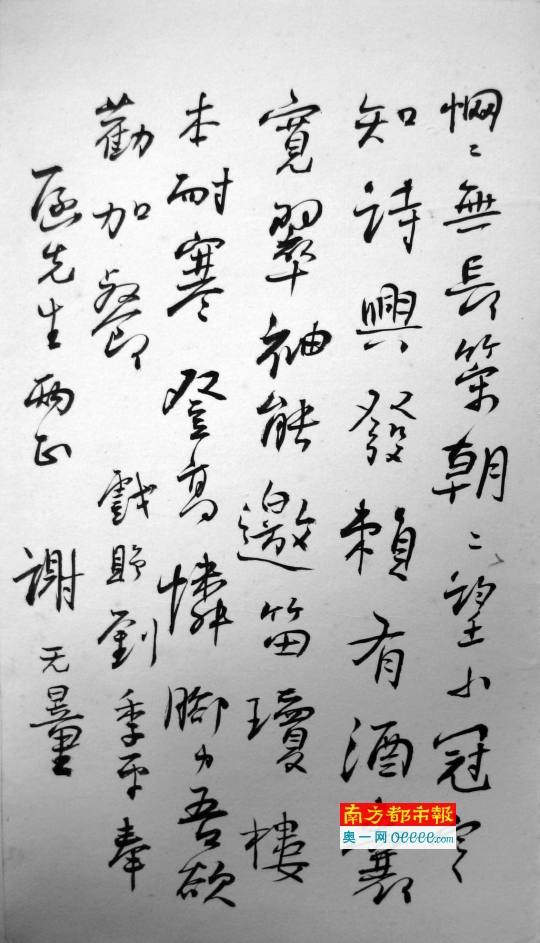 惘〻無長策朝〻望小冠定
知詩興發賴有酒
寬翠袖能邀笛瓊樓
本耐寒登高憐腳力吾欲
勸加餐 戲贈劉季平奉
先生兩正 謝无量
南方都市報
奥一网 oeeee.com